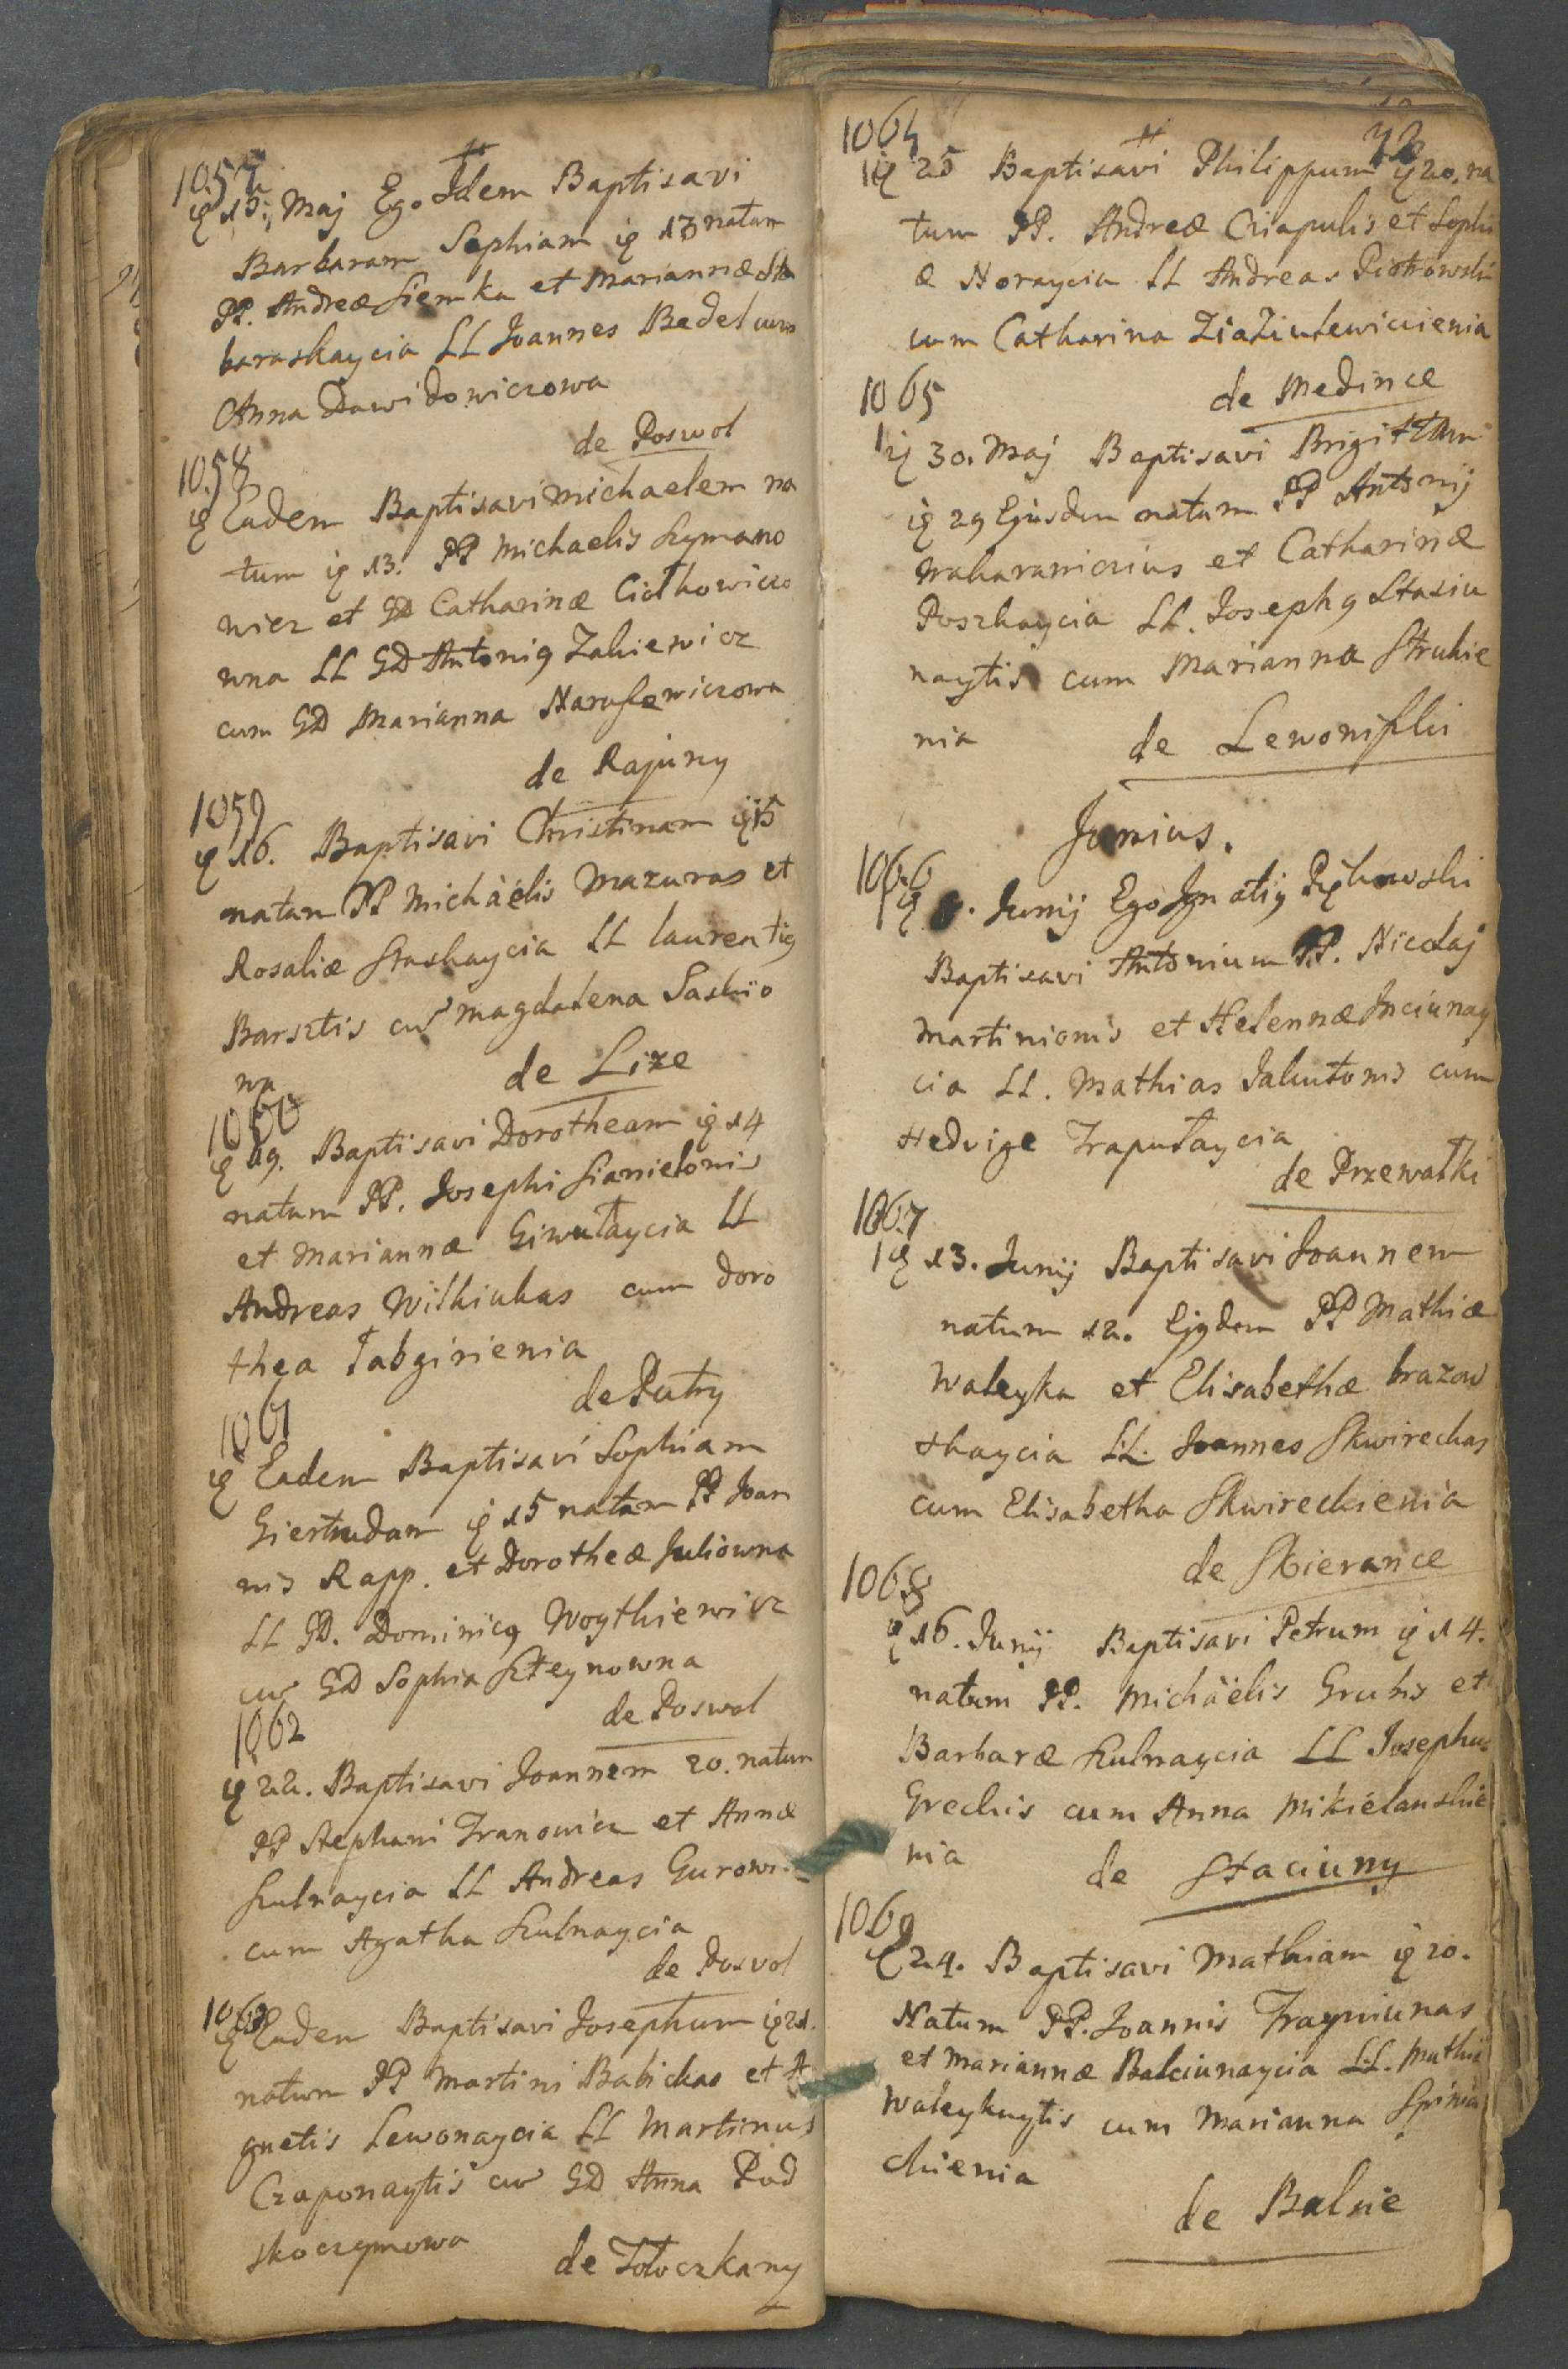 1057
15. Maj Ego Idem Baptisavi
Barbaram Sophiam ig 13 natam
PP. Andreæ Siemka et Mariannæ Sta
baraskaycia LL Joannes Bedel cum
Anna Dawidowiczowa
de Poswol
1058
ig Eadem Baptisavi Michaelem na
tum ig 13. PP Michaelis Szymano
wicz et GD Catharinæ Ciothowiczo
wna LL GD Antonig Zakiewicz
cum GD Marianna Naruszewiczowa
de Rajuny
1059
ig 16. Baptisavi Christinam ig 15
natam PP Michàélis Mazuras et
Rosaliæ Staskaycia LL Laurentig
Barsztis cu Magdalena Saskio
wa
de Lize
1060
ig 19. Baptisavi Dorotheam ig 14
natam PP. Josephi Sianielonis
et Mariannæ Giwułaycia LL
Andreas Wilkiukas cum Doro
thea Jabgirienia
de Putry
1061
ig Eadem Baptisavi Sophiam
Giertrudam ig 15 natam PP Joan
nis Rapp. et Dorotheæ Juliowna
LL GD. Dominicg Woythiewicz
cu GD Sophia Szteynowna
de Poswol
1062
ig 22. Baptisavi Joannem 20. natum
PP Stephani Iranowicz et Annæ
Kulnaycia LL Andreas Gurows
cum Agatha Kulnaycia
de Posvol
1063
ig Eadem Baptisavi Josephum ig 21.
natum PP Martini Babickas et A
gnetis Lewonaycia LL Martinus
Czaponaytis cu GD Anna Pod
skoczymowa
de Tołoczkany
72
1064
ig 25 Baptisavi Philippum ig 20. na
tum PP. Andreæ Criapulis et Sophi
æ Noraycia LL Andreas Piotrowski
cum Catharina Ziaziulewicienia
de Medince
1065
ig 30. Maj Baptisavi Brigittam
ig 29 Ejusdem natam PP Antonij
Makarawiczius et Catharinæ
Poszkaycia LL. Josephg Stasiu
naytis cum Marianna Strukie
nia
de Lewoniszki
Junius.
1066
ig Junij Ego Ignatig
Baptisavi Antonium PP. Nicolaj
Martinionis et Helennæ Inciunay
cia LL. Mathias Jakutonis cum
Hedvige Traputaycia
de Przewałki
1067
ig 13. Junij Baptisavi Joannem
natum 12. Ejgdem PP Mathiæ
Waleyka et Elisabethæ brazow
skaycia LL. Joannes Skwireckas
cum Elisabetha Skwireckienia
de Skierance
1068
ig 16. Junij Baptisavi Petrum ig 14.
natum PP. Michàëlis Grubis et
Barbaræ Kulnaycia LL Josephus
Greckis cum Anna Mikiélanskie
nia
de Staciuny
1069
ig 24. Baptisavi Mathiam ig 20.
Natum PP. Joannis Trayniunas
et Mariannæ Balciunaycia LL. Mathi
Waleykaytis cum Marianna Spinia
ckienia
de Balnie